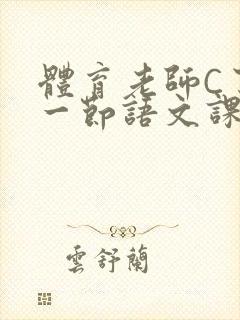 體育老師C
一節語文課
雲舒蘭